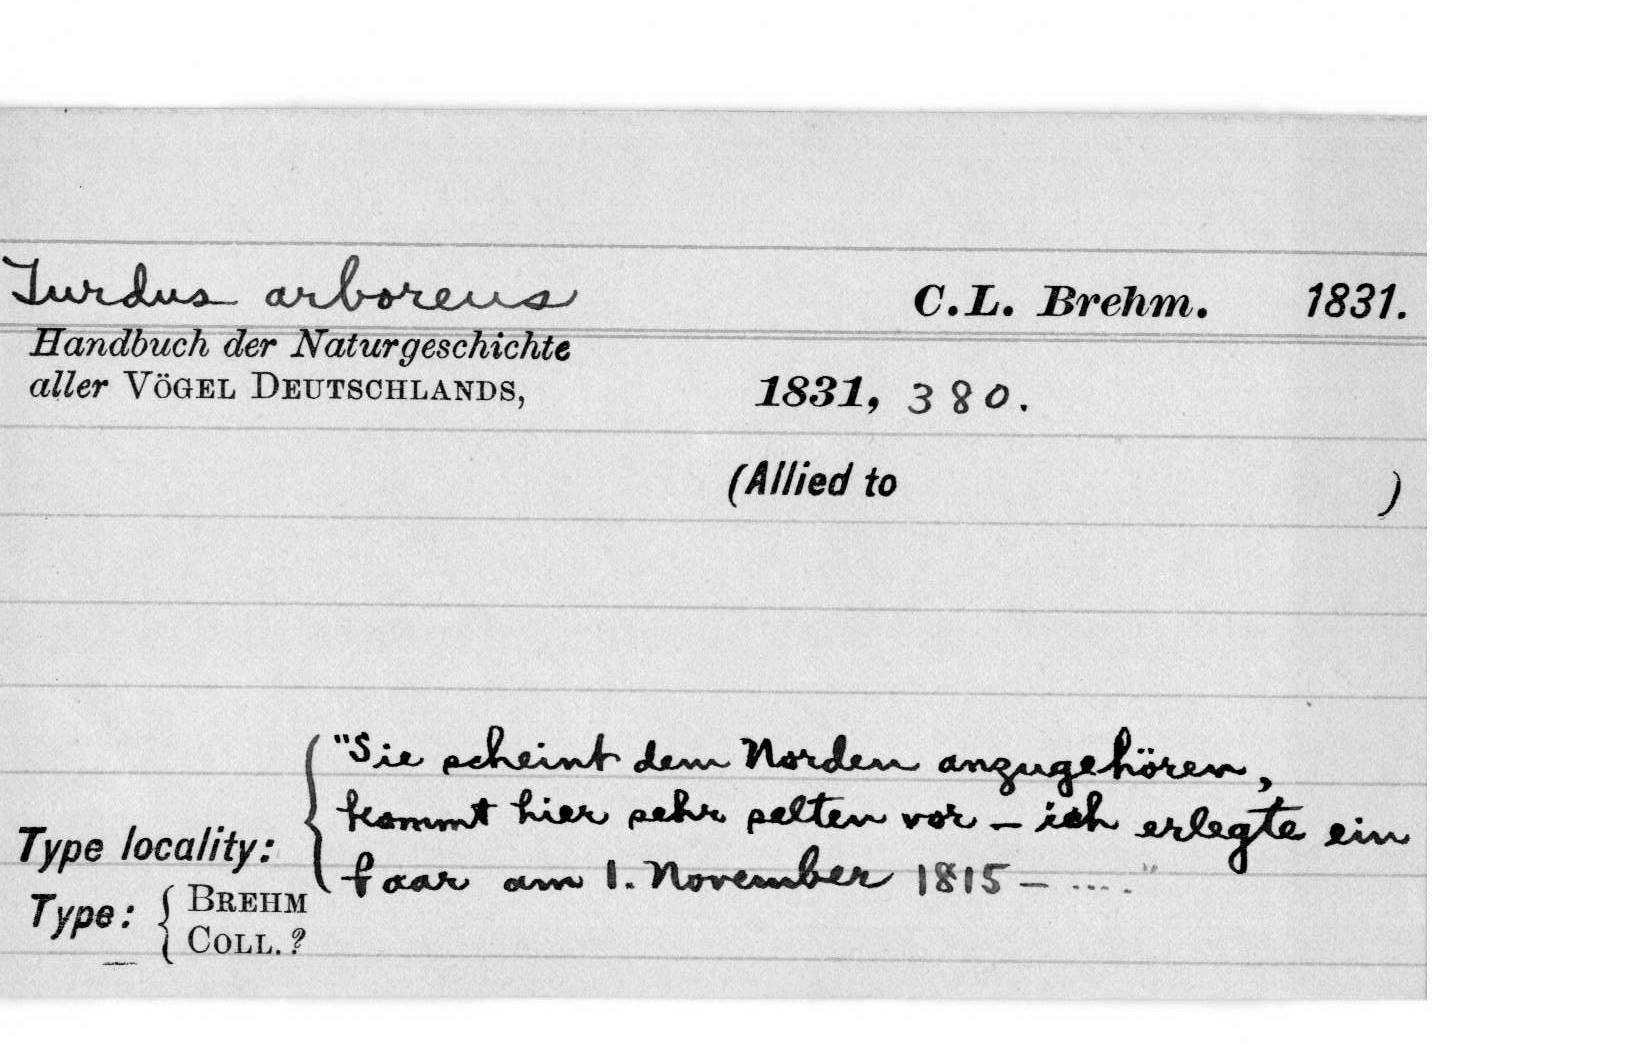 Turdus arboreus C.L. Brehm. 1831.
Handbuch der Naturgeschichte
aller VÖGEL DEUTSCHLANDS, 1831, 380.
(Allied to )
"Sie scheint dem Norden anzugehören,
kommt hier sehr selten vor – ich erlegte ein
Paar am 1. November 1815 – ...."
Type locality:
Type: { BREHM
COLL. ?